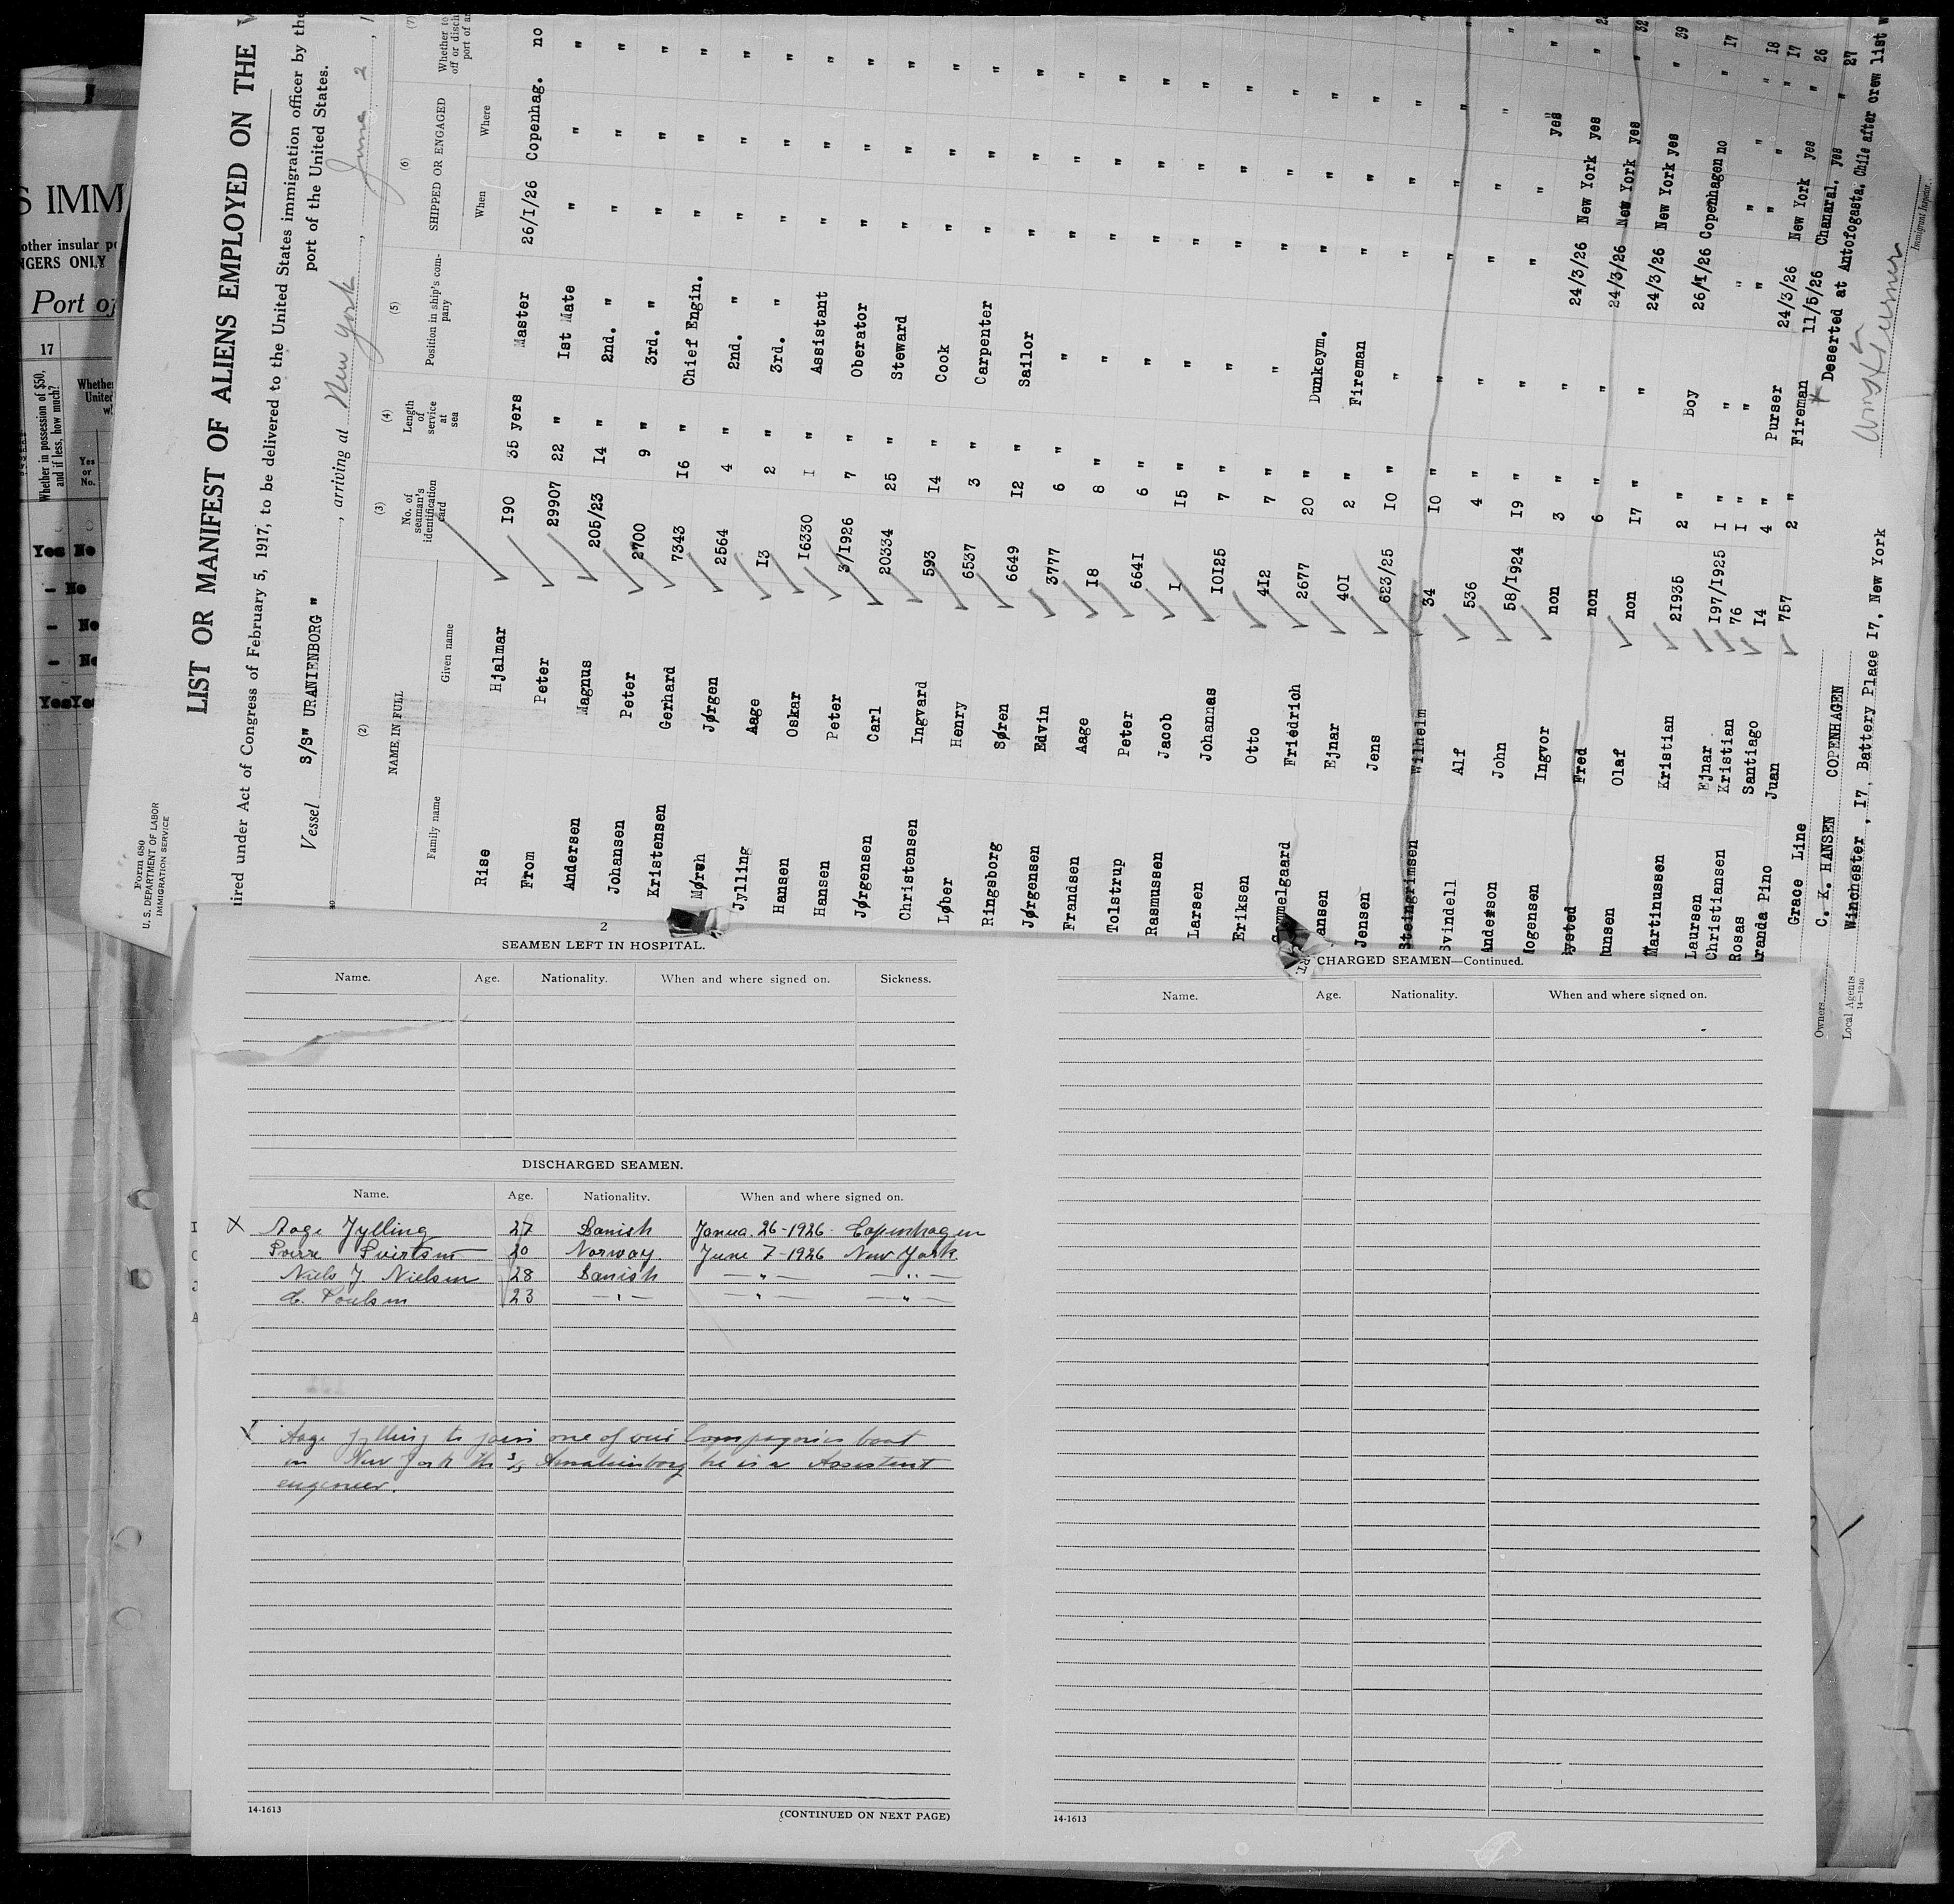 S IMM
other insular
NGERS ONLY
Port of
17
Whether in possession of $50, and if less, how much?
Yes or No.
Yes No
- No
- No
- No
Yes Yes
Form 680
U. S. DEPARTMENT OF LABOR
IMMIGRATION SERVICE
LIST OR MANIFEST OF ALIENS EMPLOYED ON THE
uired under Act of Congress of February 5, 1917, to be delivered to the United States immigration officer by the
port of the United States.
Vessel S/S" URANIENBORG " , arriving at New York , June 2 , 1
(2) (3) (4) (5) (6) (7)
NAME IN FULL
Family name Given name
No. of seaman's identification card
Length of service at sea
Position in ship's company
SHIPPED OR ENGAGED
When Where
Rise Hjalmar I90 35 yers Master 26/I/26 Copenhag. no
From Peter 29907 22 " Ist Mate " " "
Andersen Magnus 205/23 I4 " 2nd. " " " "
Johansen Peter 2700 9 " 3rd. " " " "
Kristensen Gerhard 7343 I6 " Chief Engin. " " "
Mørch Jørgen 2564 4 " 2nd. " " " "
Jylling Aage I3 2 " 3rd. " " " "
Hansen Oskar I6330 I " Assistant " " "
Hansen Peter 3/I926 7 " Oberator " " "
Jørgensen Carl 20334 25 " Steward " " "
Christensen Ingvard 593 I4 " Cook " " "
Løber Henry 6537 3 " Carpenter " " "
Ringsborg Søren 6649 I2 " Sailor " " "
Jørgensen Edvin 3777 6 " " " " "
Frandsen Aage I8 8 " " " " "
Tolstrup Peter 664I 6 " " " " "
Rasmussen Jacob I I5 " " " " "
Larsen Johannes I0I25 7 " " " " "
Eriksen Otto 4I2 7 " " " " "
Gammelgaard Friedrich 2677 20 " Dunkeym. " " "
ansen Ejnar 40I 2 " Fireman " " "
Jensen Jens 623/25 I0 " " " " "
Steingrimsen Wilhelm 34 I0 " " " " "
Svindell Alf 536 4 " " " " "
Anderson John 58/I924 I9 " " " " "
ogensen Ingvor non 3 " " " " yes "
ysted Fred non 6 " " 24/3/26 New York yes "
unsen Olaf non I7 " " 24/3/26 New York yes " 32
Martinussen Kristian 2I935 2 " Boy 24/3/26 New York yes " 39
Laursen Ejnar I97/I925 I " " 26/I/26 Copenhagen no " I7
Christiansen Kristian 76 I " " " " "
Rosas Santiago I4 4 " Purser " " " I8
Aranda Pino Juan 757 2 " Fireman 24/3/26 New York yes " 17
11/5/26 Chanaral. yes " 26
" 27
* Deserted at Antofogasta. Chile after crew list
Grace Line
Owners C. K. HANSEN COPENHAGEN
Local Agents Winchester , I7, Battery Place I7, New York
14-1240
Immigrant Inspector.
2
SEAMEN LEFT IN HOSPITAL.
Name. Age. Nationality. When and where signed on. Sickness.
DISCHARGED SEAMEN.
Name. Age. Nationality. When and where signed on.
X Aage Jylling 27 Danish Janua. 26-1926 - Copenhagen
20 Norway June 7-1926 New York
Niels J. Nielsen 28 Danish — " — — " —
C. Poulsen 23 — " — — " — — " —
X Aage Jylling to join one of our Compagnies boat
in New York the S/S Amalienborg he is a Assistent
engeneer.
14-1613
(CONTINUED ON NEXT PAGE)
CHARGED SEAMEN—Continued.
Name. Age. Nationality. When and where signed on.
14-1613